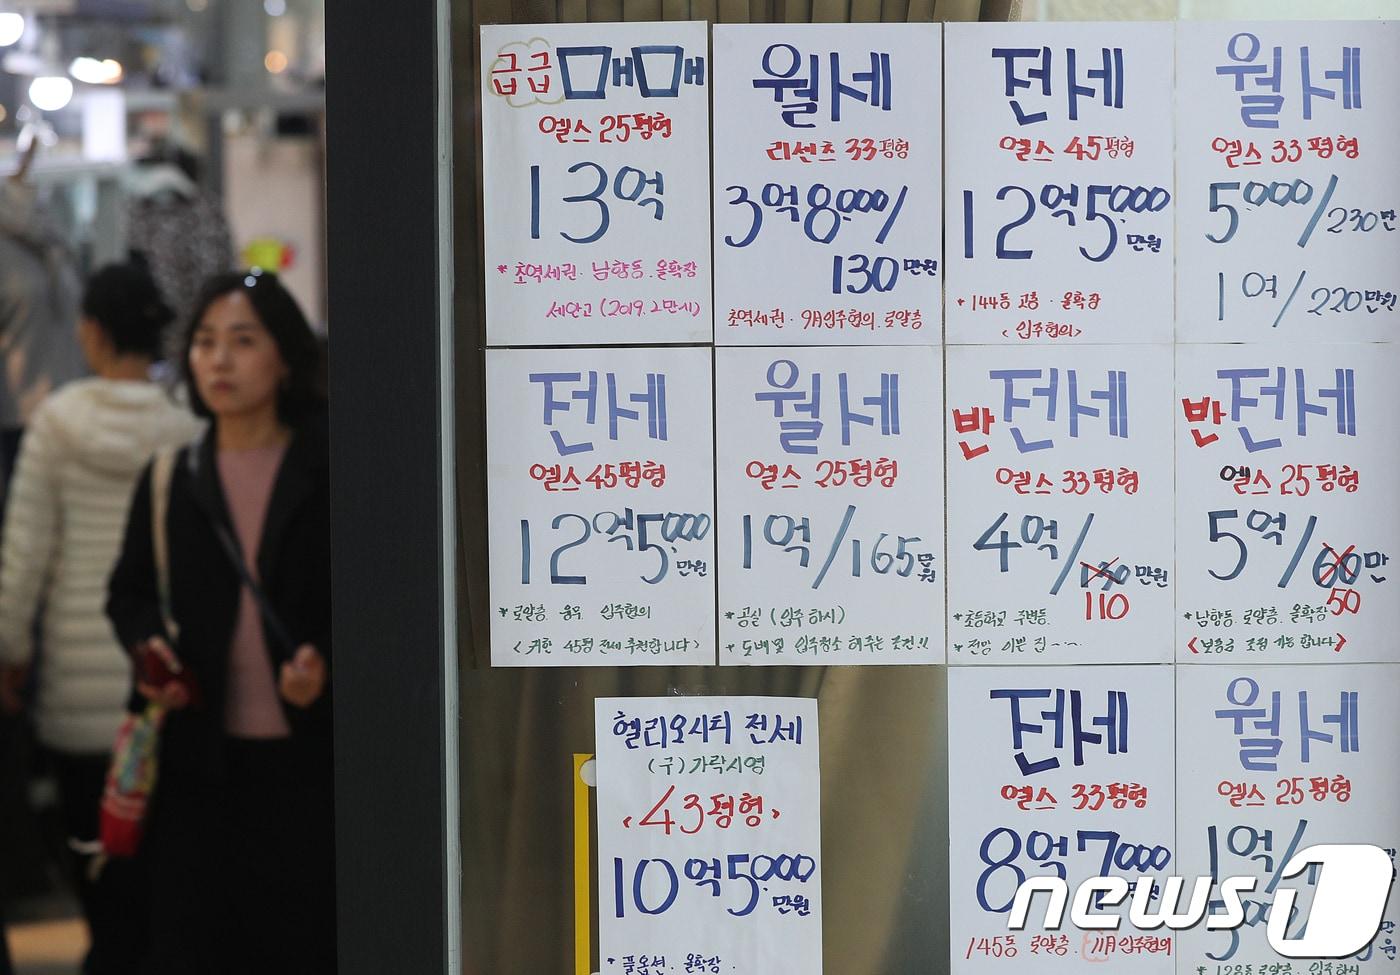 급급 매매
엘스 25평형
13억
* 초역세권. 남향동. 올확장
세안고 (2019. 2만시)
월세
리센츠 33평형
3억 8,000/
130만원
초역세권. 9月입주협의. 로얄층
전세
엘스 45평형
12억 5,000
만원
* 144동 고층. 올확장
<입주협의>
월세
엘스 33평형
5,000/230만
1억/220만원
전세
엘스 45평형
12억 5,000
만원
* 로얄층 융무 입주협의
<귀한 45평 전세 추천합니다>
월세
엘스 25평형
1억/165만원
* 공실 (입주 하시)
* 도배및 입주청소 해주는 조건!!
반전세
엘스 33평형
4억/130만원
110
* 초등학교 주변동.
* 전망 이쁜 집~~
반전세
엘스 25평형
5억/60만
50
* 남향동. 로얄층. 올확장
<보증금 조정 가능합니다>
헬리오시티 전세
(구)가락시영
<43평형>
10억 5,000
만원
* 풀옵션. 올확장.
전세
엘스 33평형
8억 7,000
145동 로얄층. 11月입주협의
월세
엘스 25평형
1억/1
500
* 128동 로얄층. 입주하시
news1